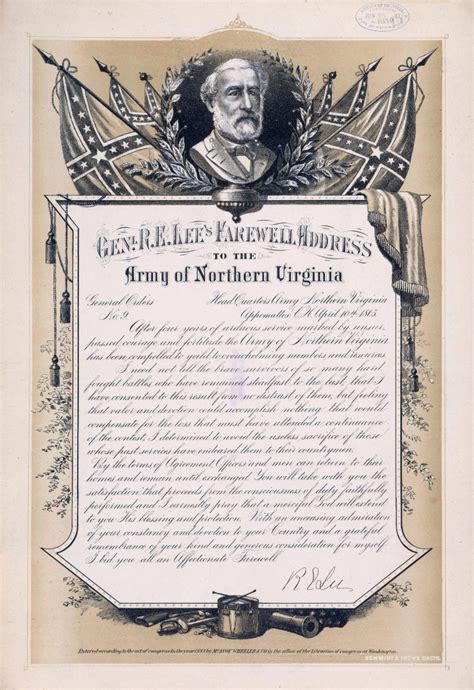 GENL. R. E. LEE'S FAREWELL ADDRESS
TO THE
Army of Northern Virginia
General Orders
No. 9.
Head Quarters Army Northern Virginia
Appomattox C.H. April 10th 1865
After four years of arduous service marked by unsur-
passed courage and fortitude the Army of Northern Virginia
has been compelled to yield to overwhelming numbers and resources
I need not tell the brave survivors of so many hard
fought battles who have remained steadfast to the last that I
have consented to this result from no distrust of them, but feeling
that valor and devotion could accomplish nothing that would
compensate for the loss that must have attended a continuance
of the contest, I determined to avoid the useless sacrifice of those
whose past services have endeared them to their countrymen.
By the terms of Agreement Officers and men can return to their
homes and remain until exchanged You will take with you the
satisfaction that proceeds from the consciousness of duty faithfully
performed and I earnestly pray that a merciful God will extend
to you His blessing and protection. With an unceasing admiration
of your constancy and devotion to your Country and a grateful
remembrance of your kind and generous consideration for myself
I bid you all an Affectionate Farewell
R E Lee
Entered according to the act of congress in the year 1883 by WHEELER & CO in the office of the Librarian of congress at Washington.